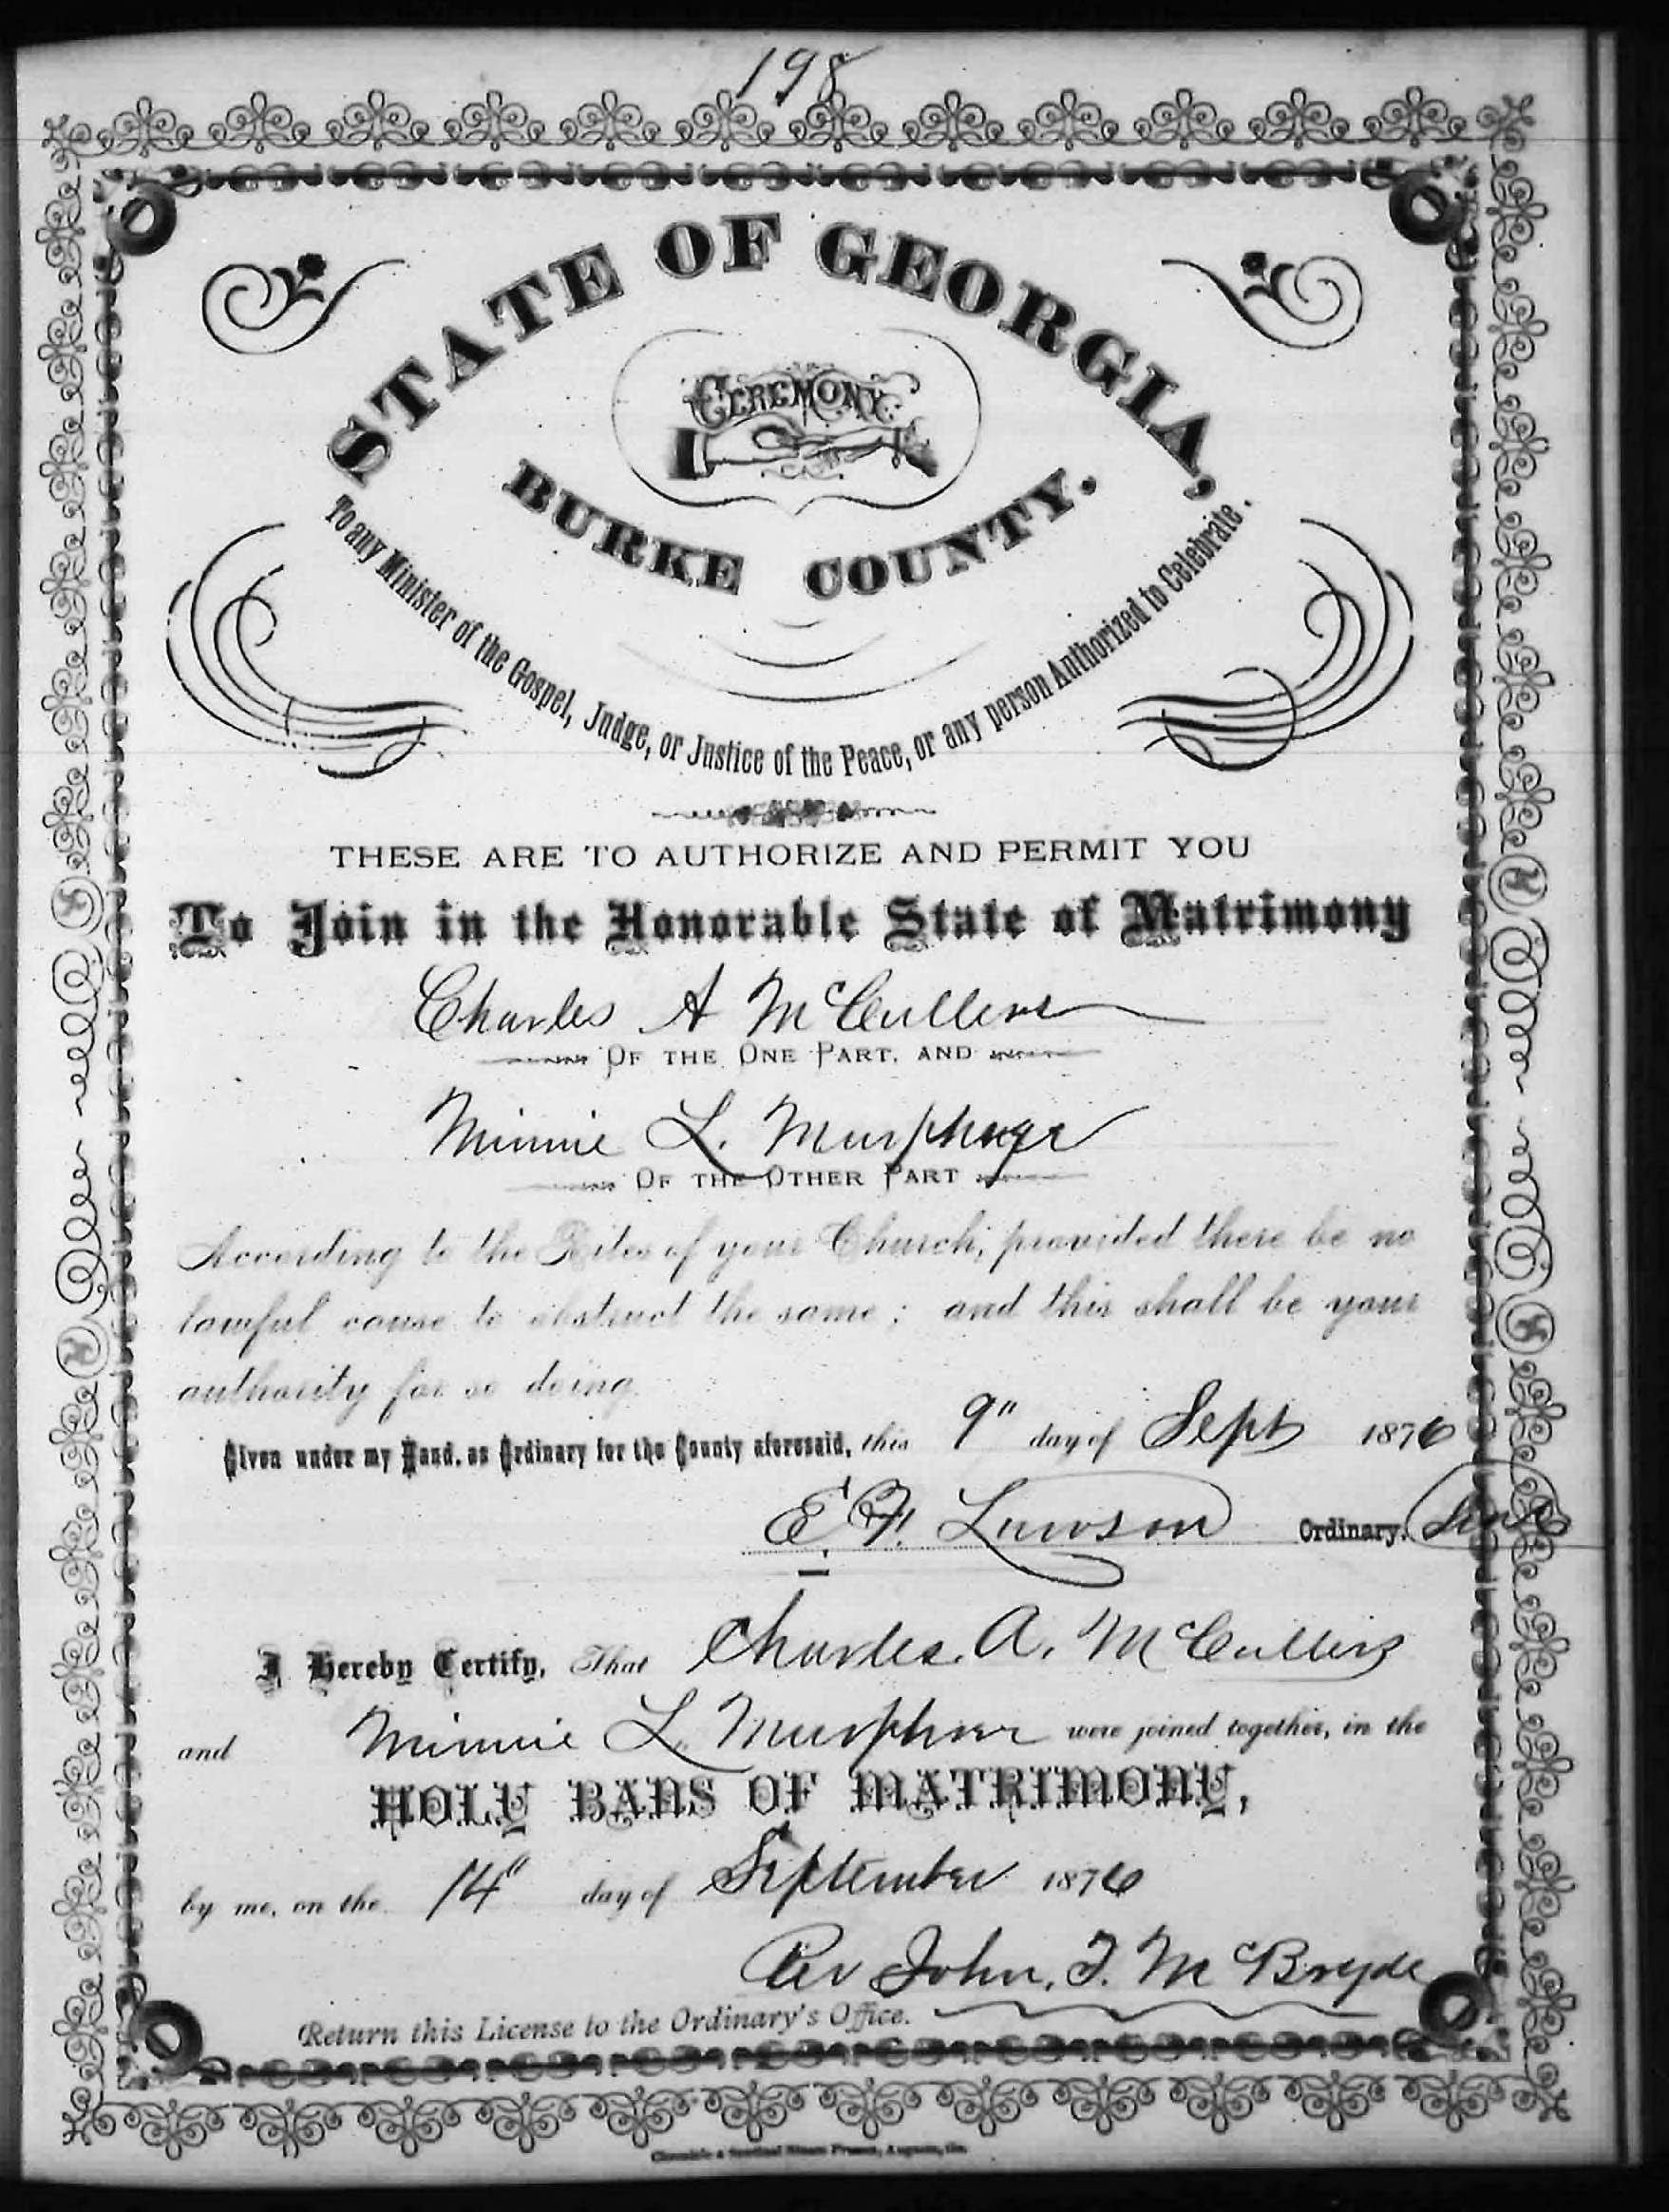 198
STATE OF GEORGIA,
CEREMONY
BURKE COUNTY.
To any Minister of the Gospel, Judge, or Justice of the Peace, or any person Authorized to Celebrate.
THESE ARE TO AUTHORIZE AND PERMIT YOU
To Join in the Honorable State of Matrimony
Charles A McCullers
OF THE ONE PART, AND
Minnie L.
OF THE OTHER PART
According to the Rites of your Church, provided there be no
lawful cause to obstruct the same; and this shall be your
authority for so doing.
Given under my Hand, as Ordinary for the County aforesaid, this 9" day of Sept 1876
E. F. Lawson Ordinary.
I Hereby Certify, That Charles. A. McCullers
and Minnie L. were joined together, in the
HOLY BANS OF MATRIMONY,
by me, on the 14" day of September 1876
Rev John, T. McBryde
Return this License to the Ordinary's Office.
Chronicle & Sentinel Steam Presses, Augusta, Ga.